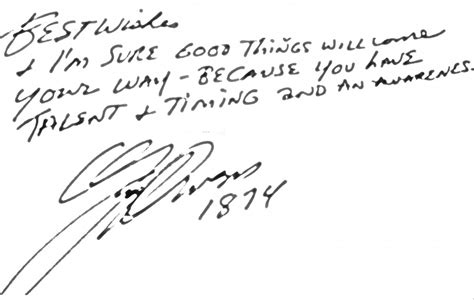 BEST Wishes
& I'M SURE GOOD THINGS WILL come
YOUR WAY - BECAUSE YOU HAVE
TALENT & TIMING AND AN AWARENES.
1974